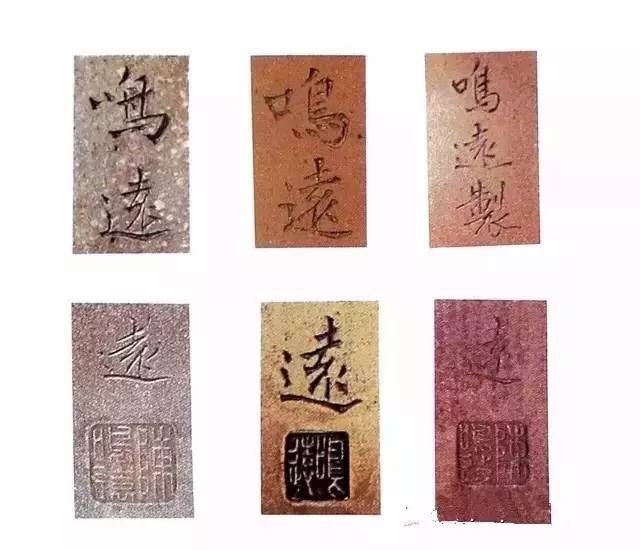 鳴遠
鳴遠
鳴遠製
遠
陳
鳴遠
遠
鳴
遠
遠
陳
鳴遠